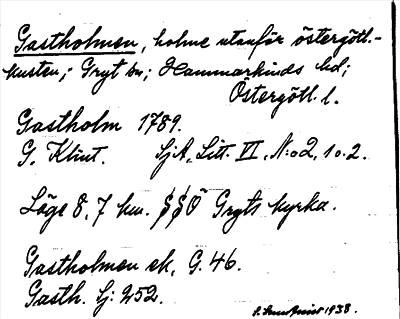 Gastholmen, holme utanför östergötl.-
kusten; Gryt sn; Hammarkinds hd;
Östergötl. l.
Gastholm 1789.
G. Klint. SjA, Litt. VI, N:o 2, 1 o. 2.
Läge 8,7 km. SSO Gryts kyrka.
Gastholmen ek, G. 46.
Gasth. Sj: 252.
1938.